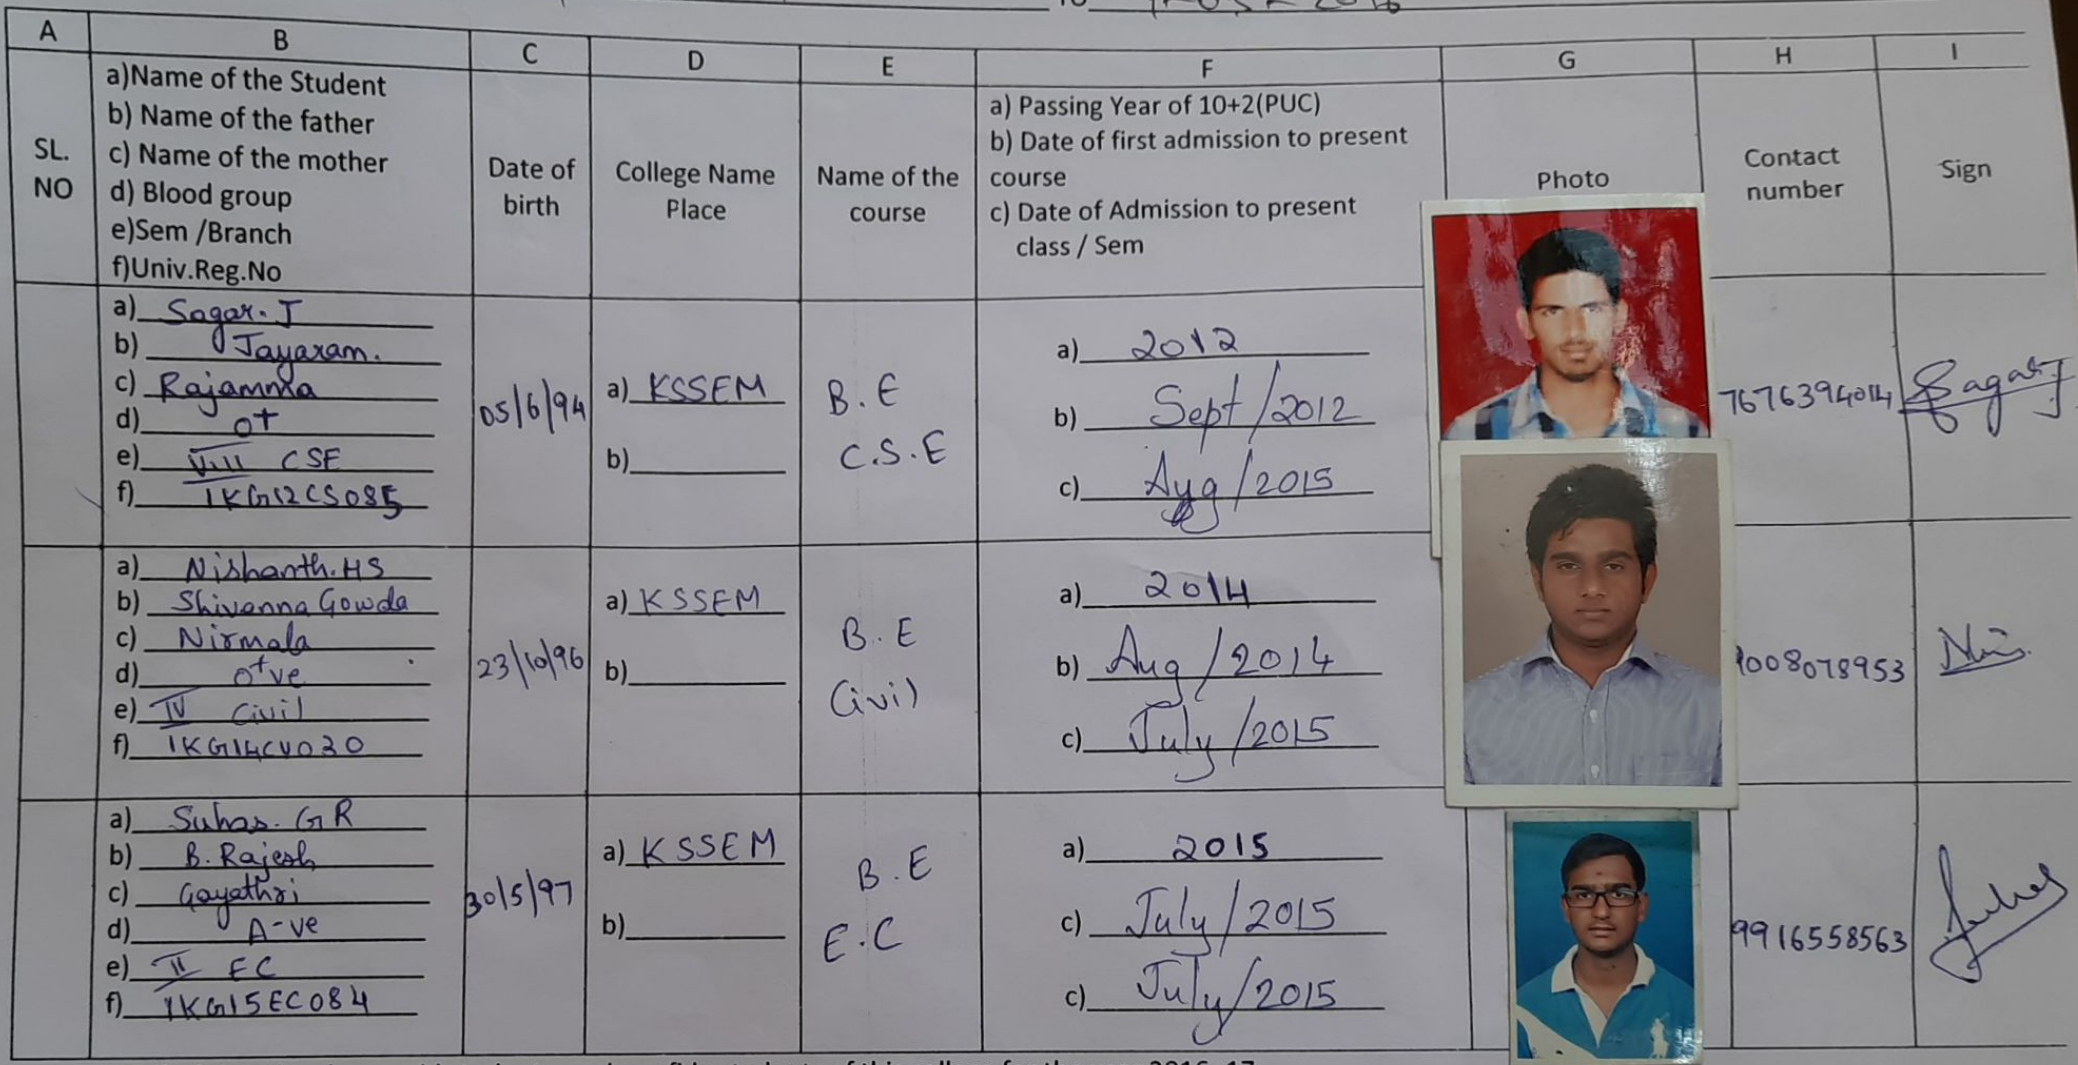 A B C D E F G H I
SL.
NO
a)Name of the Student
b) Name of the father
c) Name of the mother
d) Blood group
e)Sem /Branch
f)Univ.Reg.No
Date of
birth
College Name
Place
Name of the
course
a) Passing Year of 10+2(PUC)
b) Date of first admission to present
course
c) Date of Admission to present
class / Sem
Photo
Contact
number
Sign
a) Sagar. J
b) Jayaram.
c) Rajamma
d) O+
e) VIII CSE
f) 1KG12CS085
05/6/94
a) KSSEM
b)
B.E
C.S.E
a) 2012
b) Sept/2012
c) Aug/2015
7676394014
Sagar J
a) Nishanth.HS
b) Shivanna Gowda
c) Nirmala
d) O+ve
e) IV Civil
f) 1KG14CV030
23/10/96
a) KSSEM
b)
B.E
Civil
a) 2014
b) Aug/2014
c) July/2015
9008078953
a) Suhas. G R
b) B. Rajesh
c) Gayathri
d) A-ve
e) II EC
f) 1KG15EC084
30/5/97
a) KSSEM
b)
B.E
E.C
a) 2015
c) July/2015
c) July/2015
9916558563
Suhas